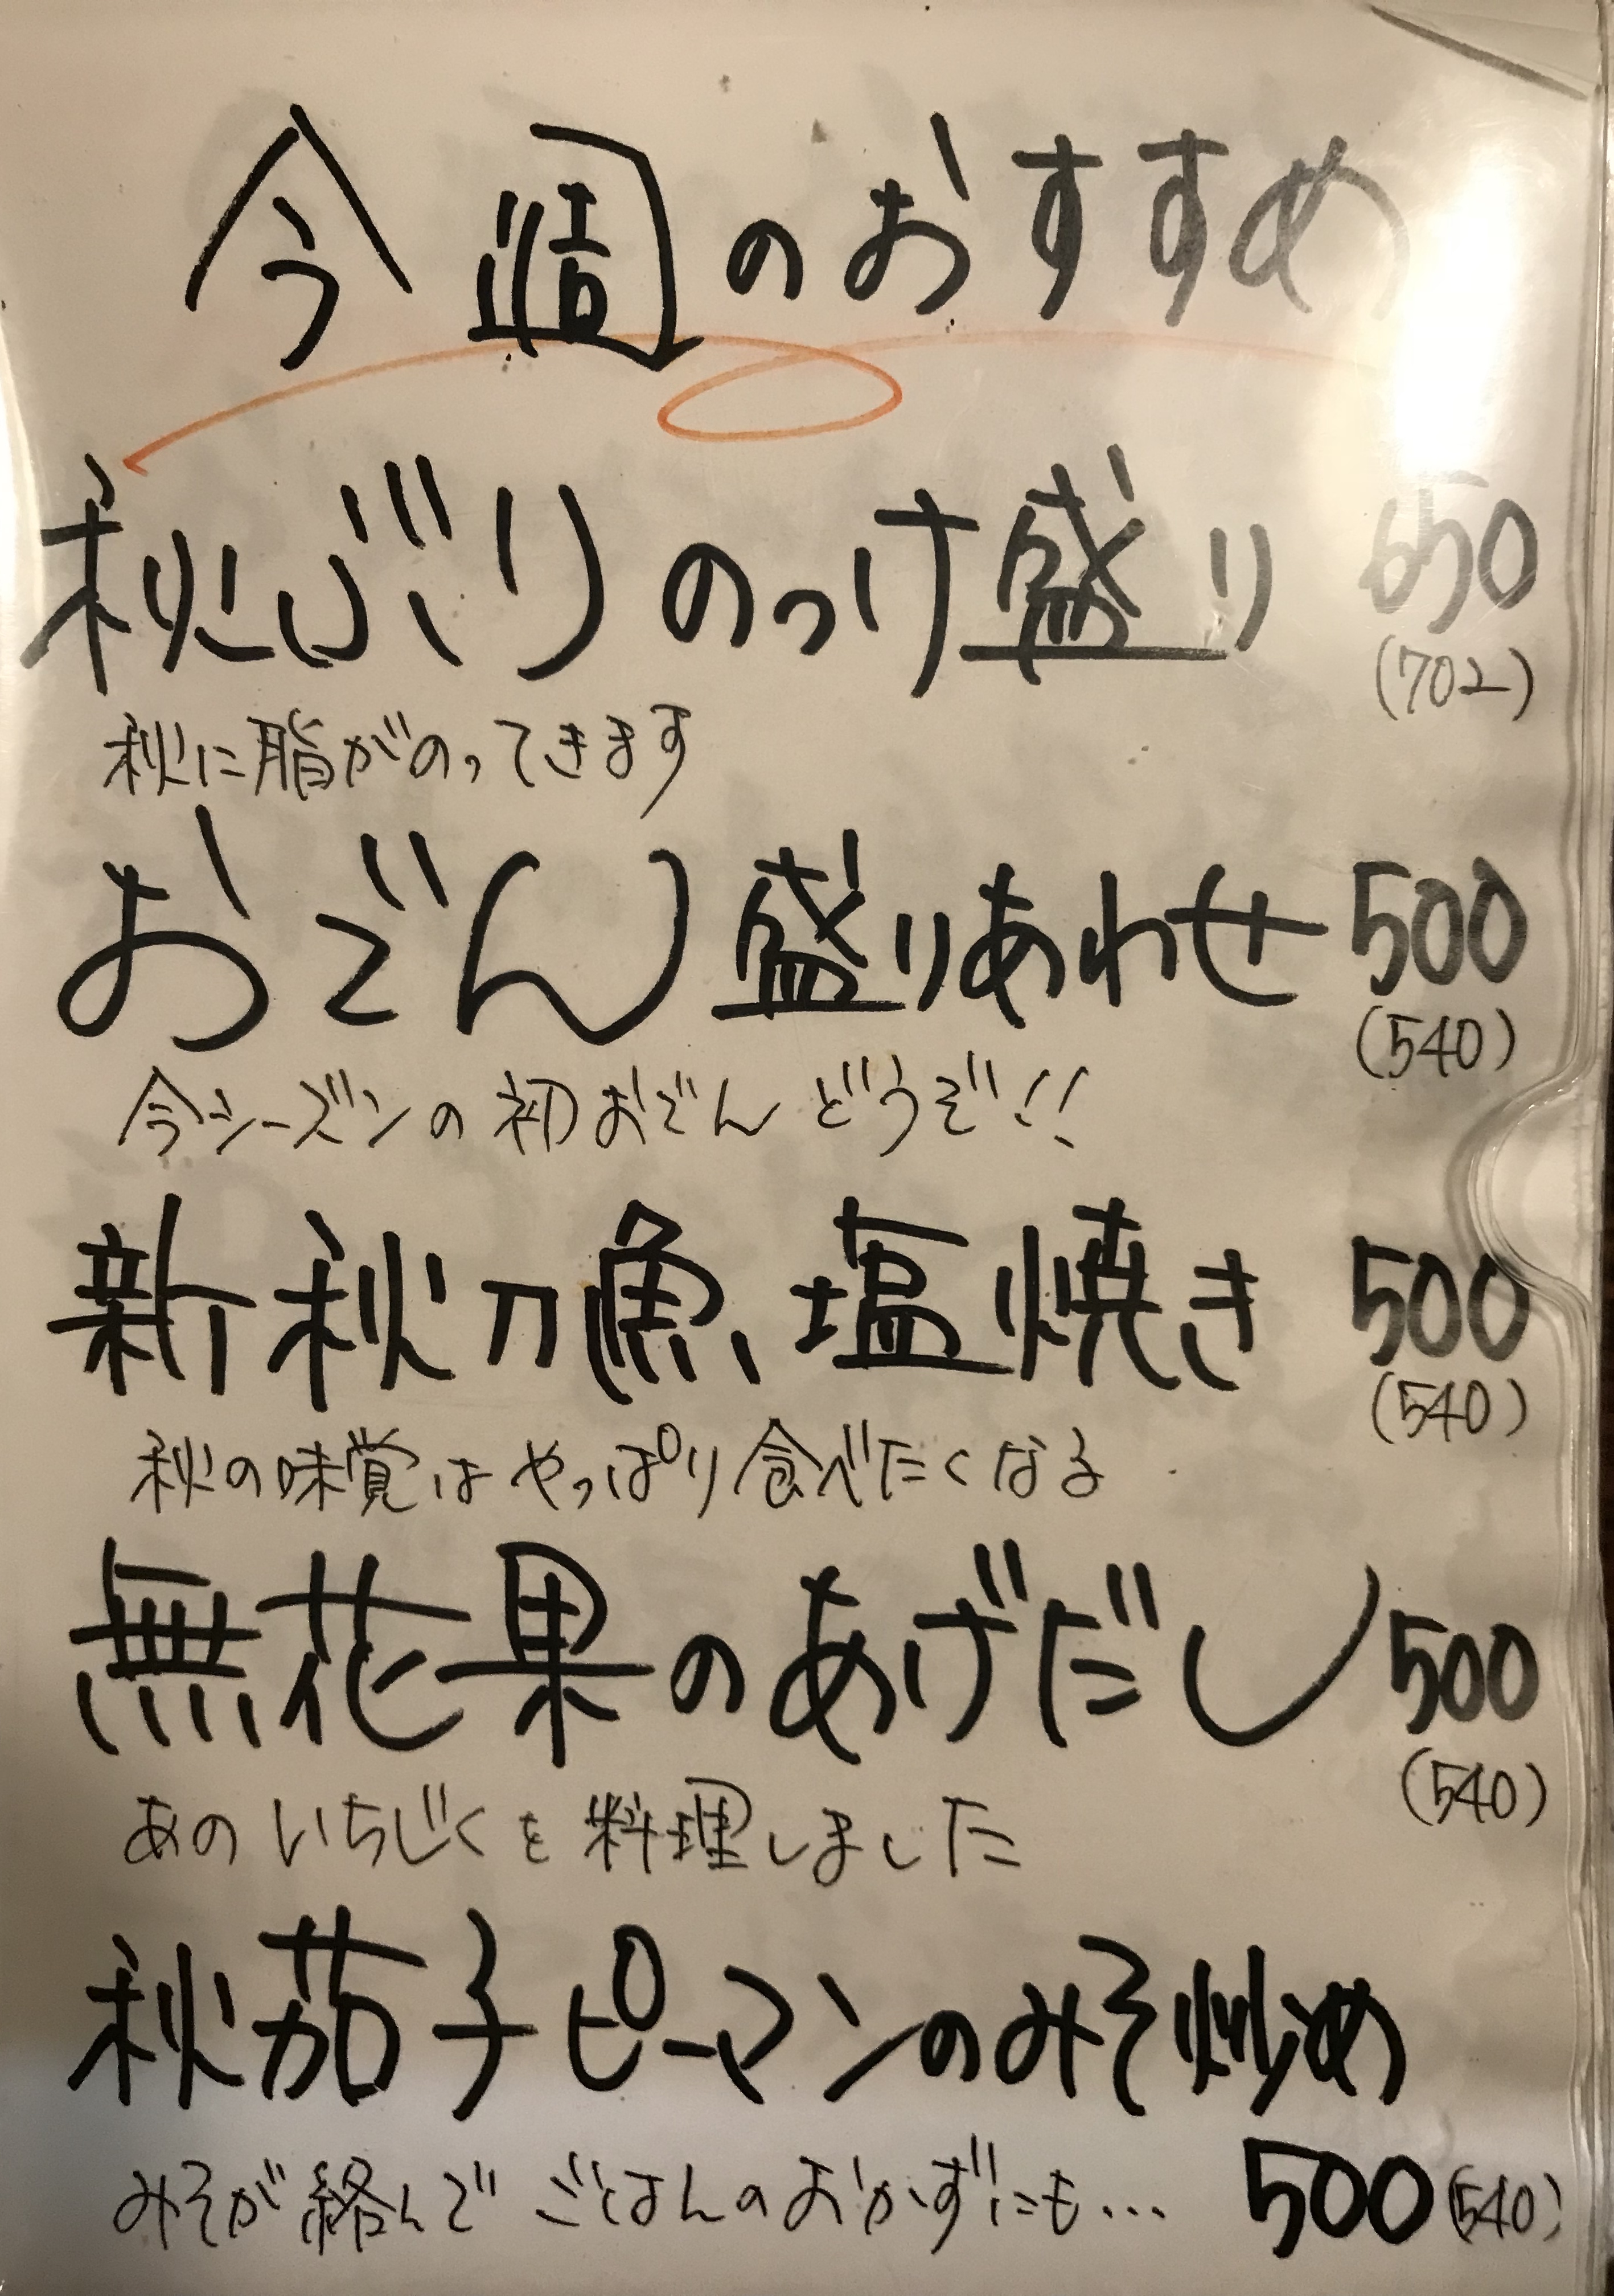 今週のおすすめ
秋ぶりのっけ盛り 650
(702)
秋に脂がのってきます
おでん盛りあわせ 500
(540)
今シーズンの初おでん どうぞ!!
新秋刀魚、塩焼き 500
(540)
秋の味覚はやっぱり食べたくなる
無花果のあげだし 500
(540)
あのいちじくを料理しました
秋茄子ピーマンのみそ炒め
みそが絡んでごはんのおかずにも… 500 (540)